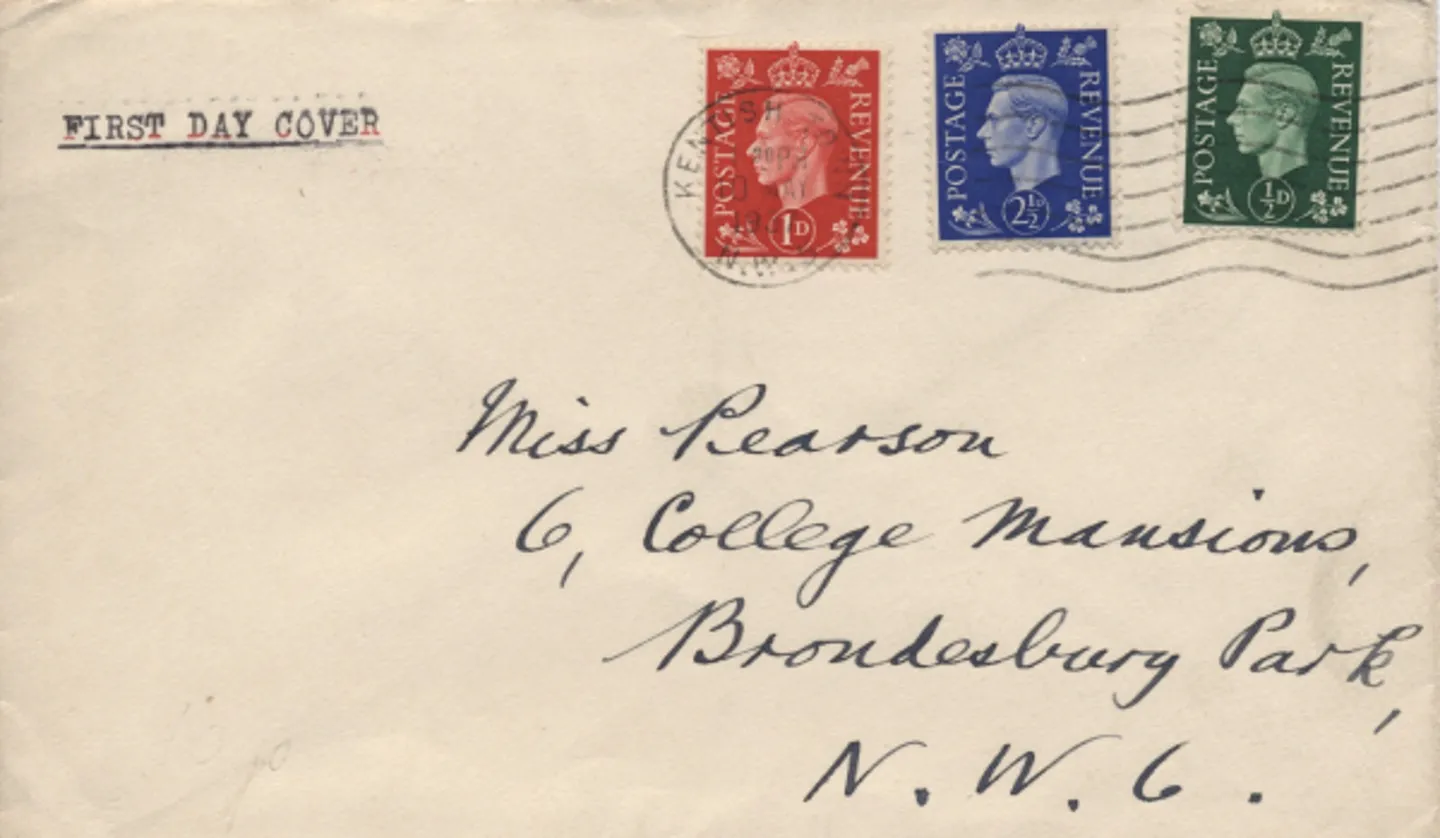 FIRST DAY COVER
POSTAGE REVENUE
1D
POSTAGE REVENUE
2½D
POSTAGE REVENUE
½D
KENTISH
N.W.
Miss Pearson
6, College Mansions,
Brondesbury Park,
N. W. 6.